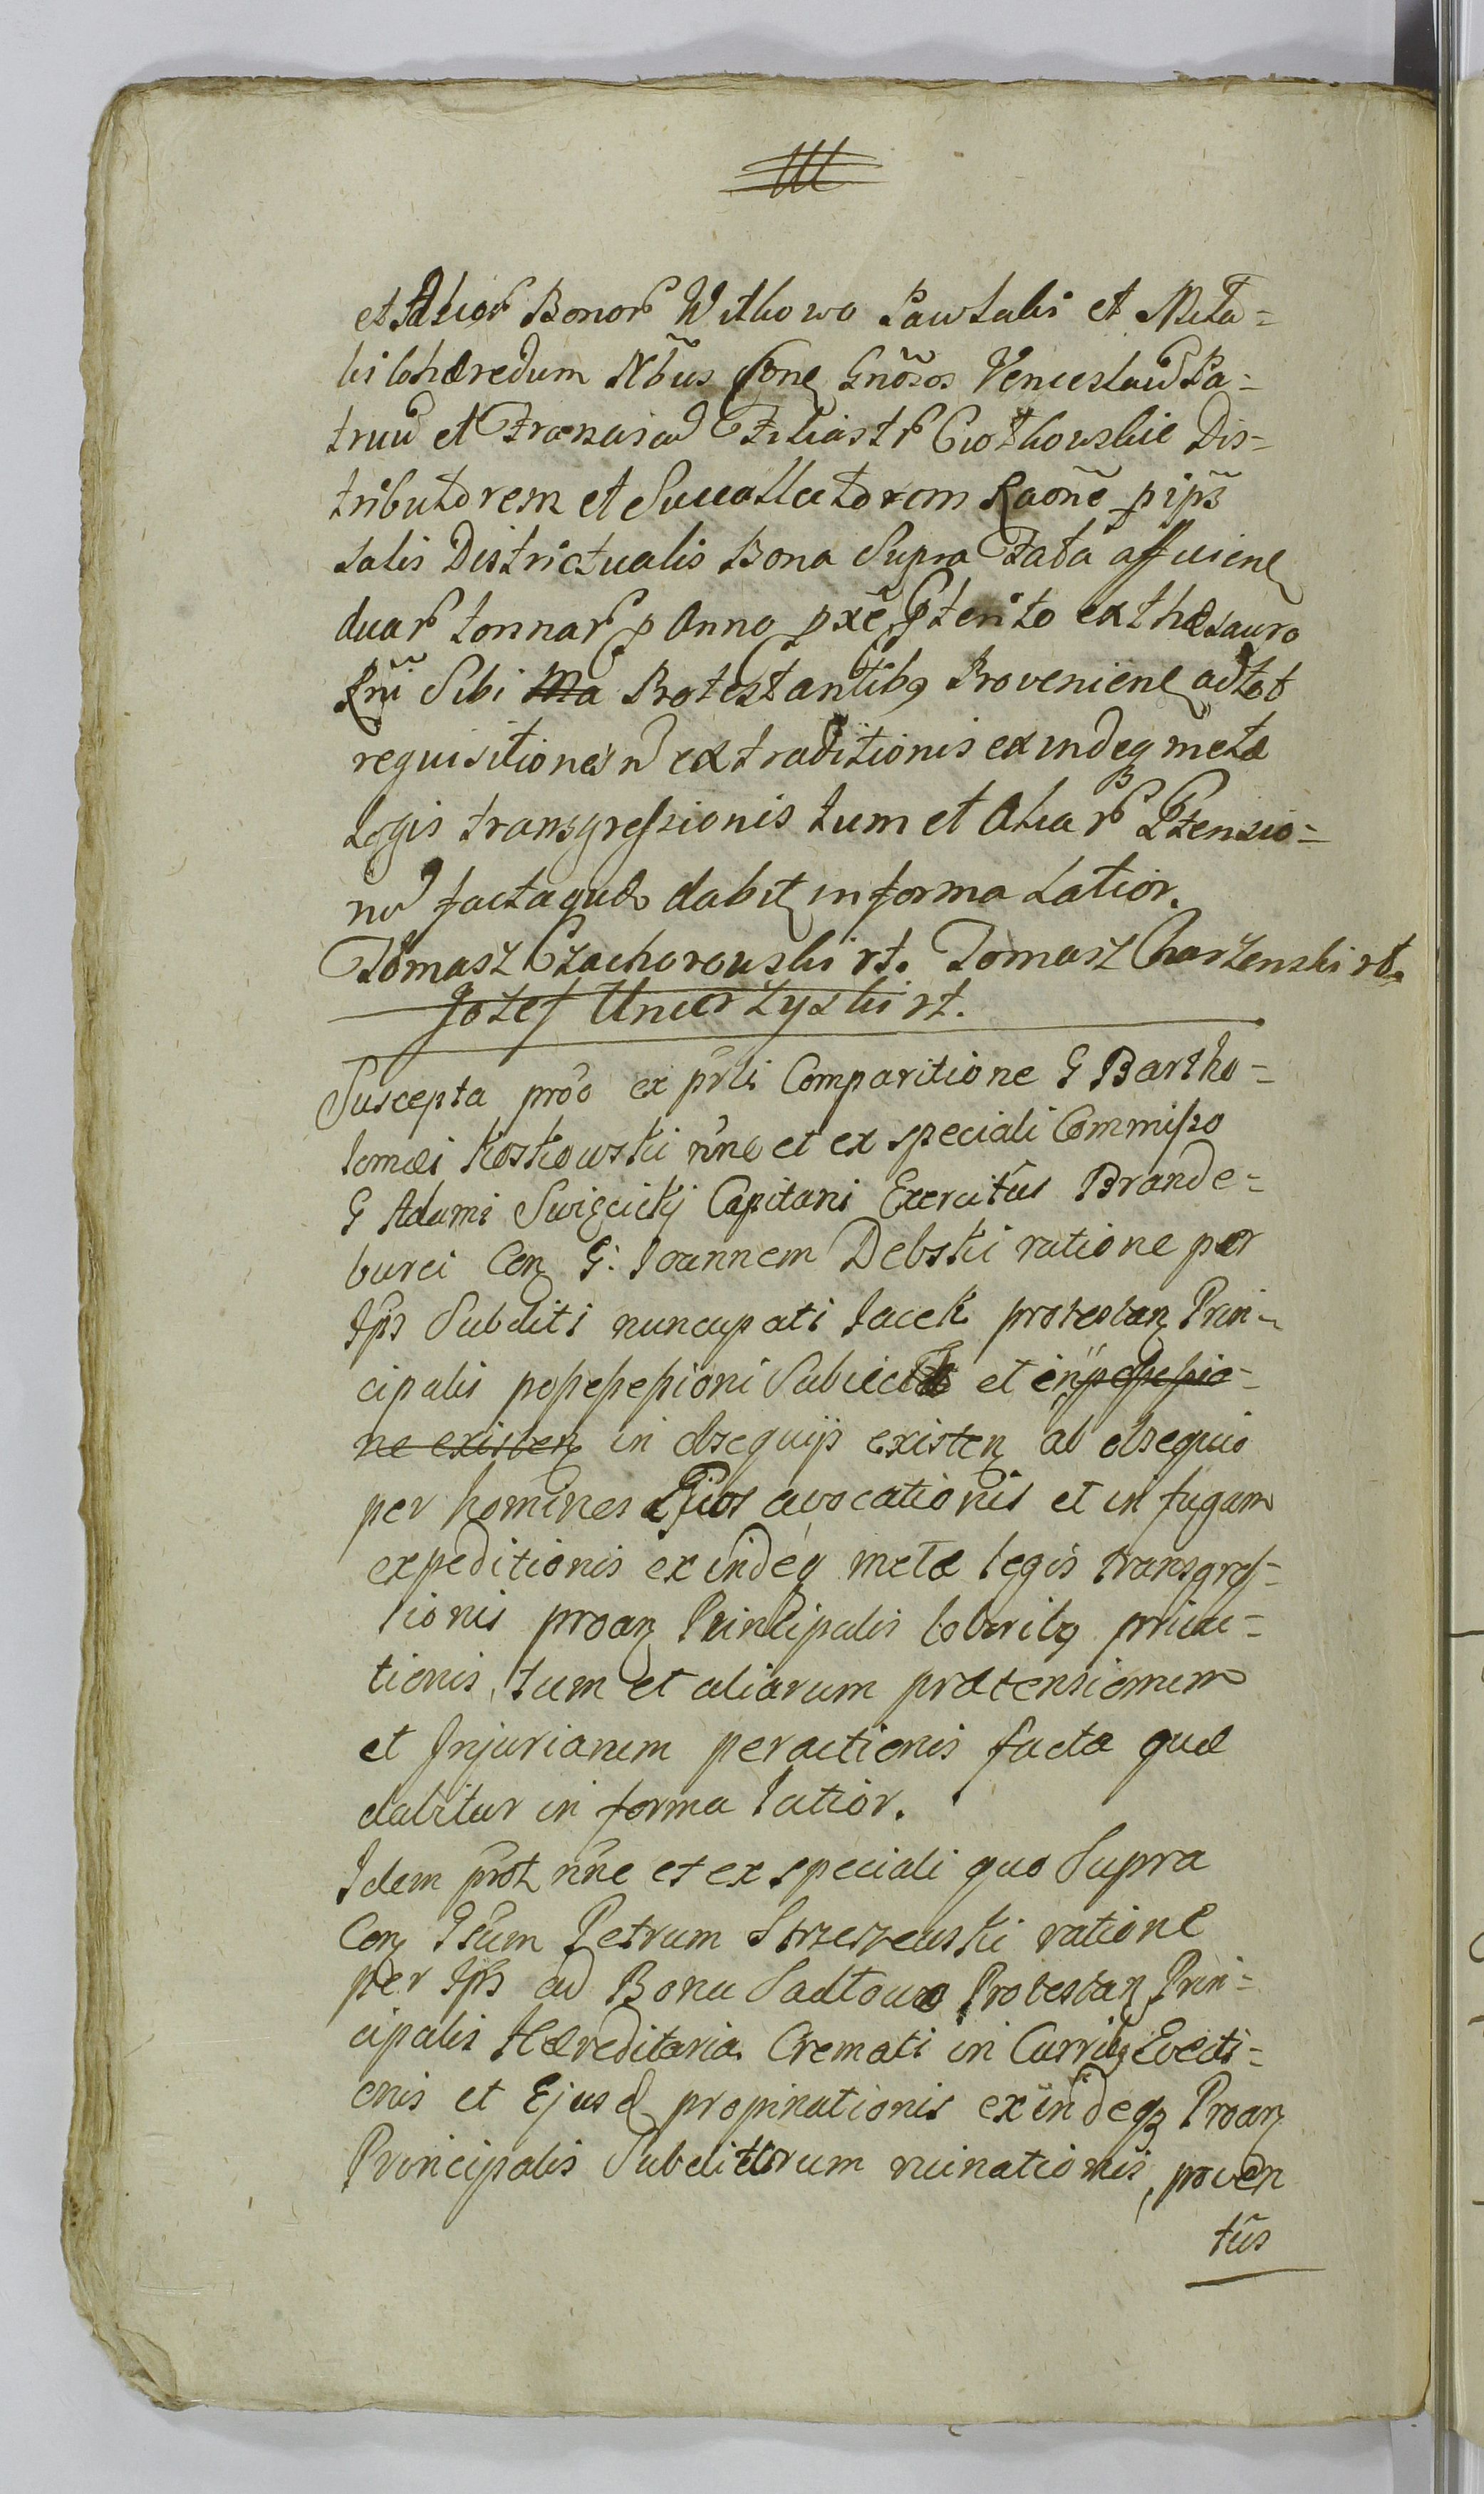 et Alior Bonor Witkowo Pawlaki et Meta=
ki Cohæredum Nbus Cone Gnosos Venceslaū Pa=
truū et Franciscū Filiastr Ciothowskie Dis=
tributorem et Succollectorem Raone p ips
Salis Districtualis Bona Supra fata afficiene
duar tonnar p Anno pxe Pterito ex thæsauro
Rni Sibi Ma Protestantibq Proveniene ad tot
requisitiones n extraditionis exindeq metæ
legis transgressionis tum et Aliar Ptensio=
nū facta quæ dabit in forma Latior.
Tomasz Czachorowski rt. Tomasz Charzenski rt.
Jozef Unierzyski rt.
Suscepta proo ex prli Comparitione G Bartho=
lomei Koskowski nne et ex speciali Commisso
G Adami Swięcickj Capitani Exercitûs Brande=
burci Con G: Joannem Debski ratione per
Ips Subditi nuncupati Jacek protestan Prin=
cipalis possessioni Subiecti et in possessio=
ne existen in obsequijs existen ab obsequio
per homines Ejus avocationis et in fugam
expeditionis exindeq metæ legis transgres=
sionis proan Principalis laboribq priva=
tionis, tum et aliarum prætensionum
et Injuriarum peractionis facta quæ
dabitur in forma latior.
Idem prot nne et ex speciali quo Supra
Con Gsum Petrum Strzeszewski ratione
per Ips ad Bona Sadłowo Protestan Prin=
cipalis Hæreditaria Cremati in Curribq Evecti=
onis et Ejusd propinationis exindeq Proan
Principalis Subditorum ruinationis, proven
tûs